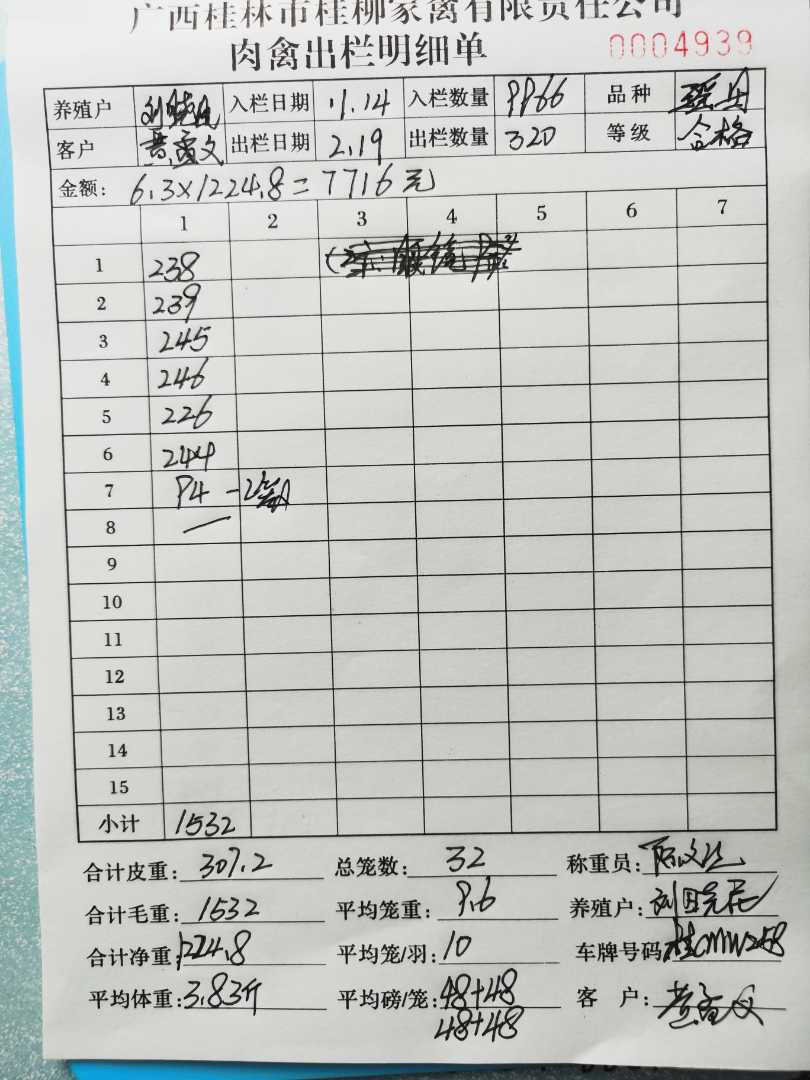 广西桂林市桂柳家禽有限责任公司
肉禽出栏明细单 0004939
养殖户 刘晓民 入栏日期 11.14 入栏数量 9966 品种 瑶鸡
客户 黄 文 出栏日期 2.19 出栏数量 320 等级 合格
金额: 6.3×1224.8=7716元
1 2 3 4 5 6 7
1 238
2 239
3 245
4 246
5 226
6 244
7 94 -2笼
8 —
9
10
11
12
13
14
15
小计 1532
合计皮重: 307.2 总笼数: 32 称重员:
合计毛重: 1532 平均笼重: 9.6 养殖户: 刘晓民
合计净重: 1224.8 平均笼/羽: 10 车牌号码: 桂CMW258
平均体重: 3.83斤 平均磅/笼: 48+48 客户: 黄 文
48+48